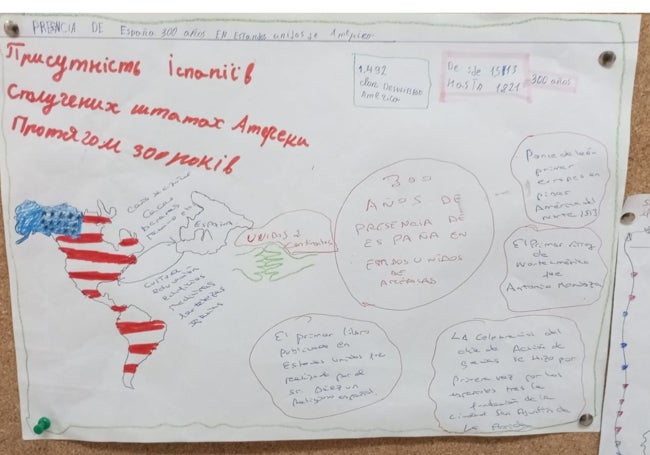 PRESNCIA DE España 300 años EN Estados unidos de América
Присутність іспаніїв
Сполучених штатах Америки
Протягом 300 років
1.492
América
Desde 1513
HASTA 1821
300 años
España
UNIDOS 2
Continentes
CULTURA
300
AÑOS DE
PRESENCIA DE
ESPAÑA EN
ESTADOS UNIDOS
DE
AMÉRICAS
Ponce de León
primer
europeo en
pisar
América del
norte 1513
El Primer
de
Norteamérica
fue
Antonio Mendoza
El primer libro
publicado en
Estados Unidos fue
realizado por
sr.
Religioso español.
LA Celebración del
día de Acción de
gracias se hizo por
primera vez por los
españoles tras la
fundación de la
ciudad San Agustín de
La Florida